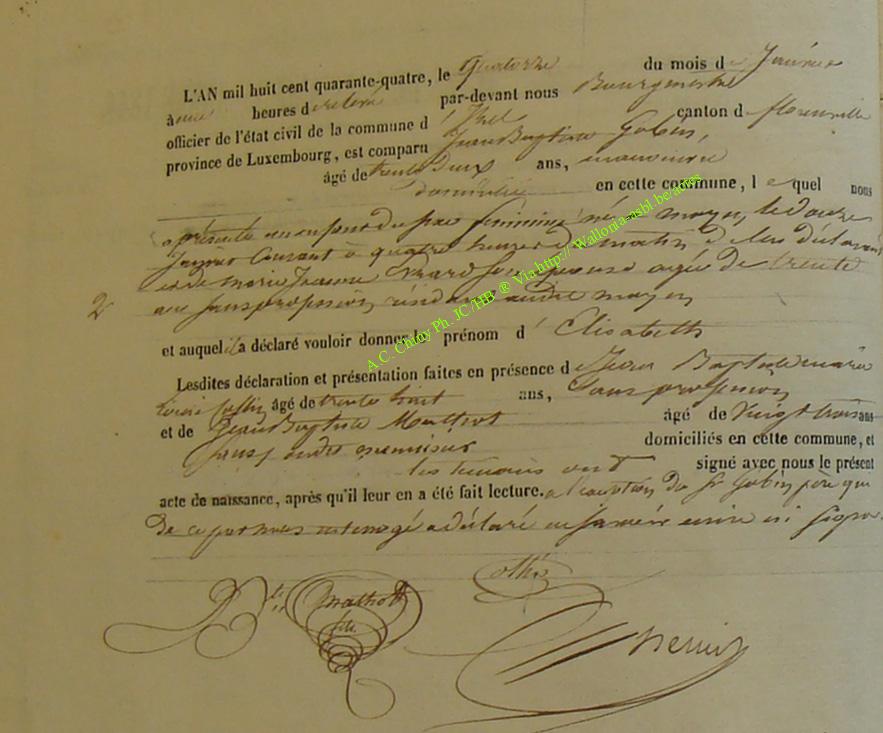 L'AN mil huit cent quarante-quatre, le quatorze du mois de Janvier
à heures d par-devant nous Bourgmestre
officier de l'état civil de la commune d' Izel canton d florenville
province de Luxembourg, est comparu Jean Baptiste Gobin,
âgé de trente Deux ans, manoeuvre
domicilié en cette commune, le quel nous
a présenté un enfant du sexe féminin né moyen, le douze
Janvier Courant à quatre heures du matin de lui déclarant
et de marie Jeanne son épouse agée de trente
2
ans sans profession, résidant audit moyen
et auquel il a déclaré vouloir donner le prénom d' Elisabeth
Lesdites déclaration et présentation faites en présence de Jean Baptiste
Louis Collin âgé de trente huit ans, sans profession
et de Jean Baptiste âgé de Vingt trois ans
menuisier domiciliés en cette commune, et
les temoins ont signé avec nous le présent
acte de naissance, après qu'il leur en a été fait lecture. a l'exception du Sr Gobin père qui
de ce par nous a déclaré ne savoir écrire ni signer.
A.C. Chiny Ph. JC/HB ® Via http:// Wallonia-asbl.be/actes